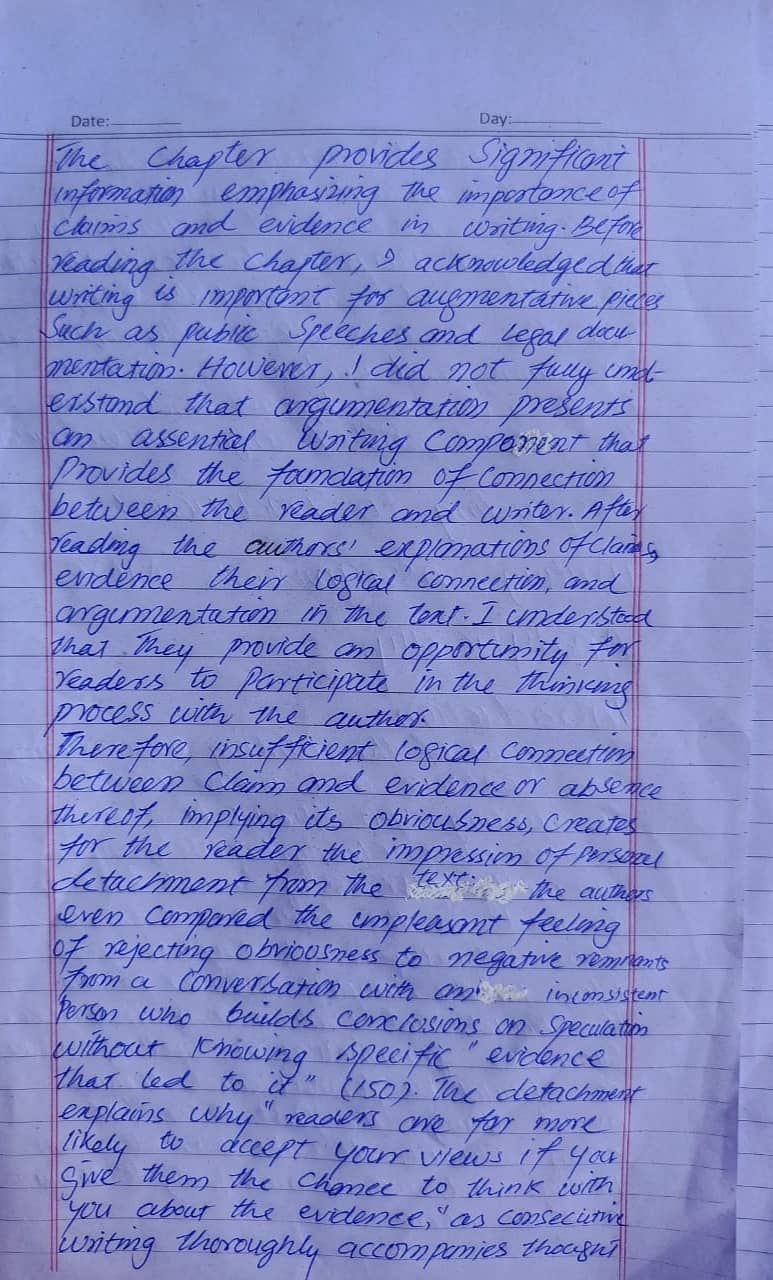 Date: Day:
The Chapter provides Significant
information emphasizing the importance of
claims and evidence in writing. Before
reading the Chapter, I acknowledged that
writing is important for augmentative pieces
Such as public Speeches and legal docu
mentation. However, I did not fully und-
erstand that argumentation presents
an assential writing Component that
Provides the foundation of Connection
between the reader and writer. After
reading the authors' explanations of Claims,
evidence their logical connection, and
argumentation in the text. I understood
that they provide an opportunity for
readers to Participate in the thinking
process with the author.
Therefore, insufficient logical Connection
between Claim and evidence or absence
thereof, implying its obviousness, Creates
for the reader the impression of Personal
detachment from the text. the authors
even Compared the unpleasant feeling
of rejecting obviousness to negative remnants
from a Conversation with an inconsistent
Person who builds Conclusions on Speculation
without Knowing specific "evidence
that led to it" (150). The detachment
explains why "readers are far more
likely to accept your views if you
give them the Chance to think with
you about the evidence," as Consecutive
writing thoroughly accompanies thought